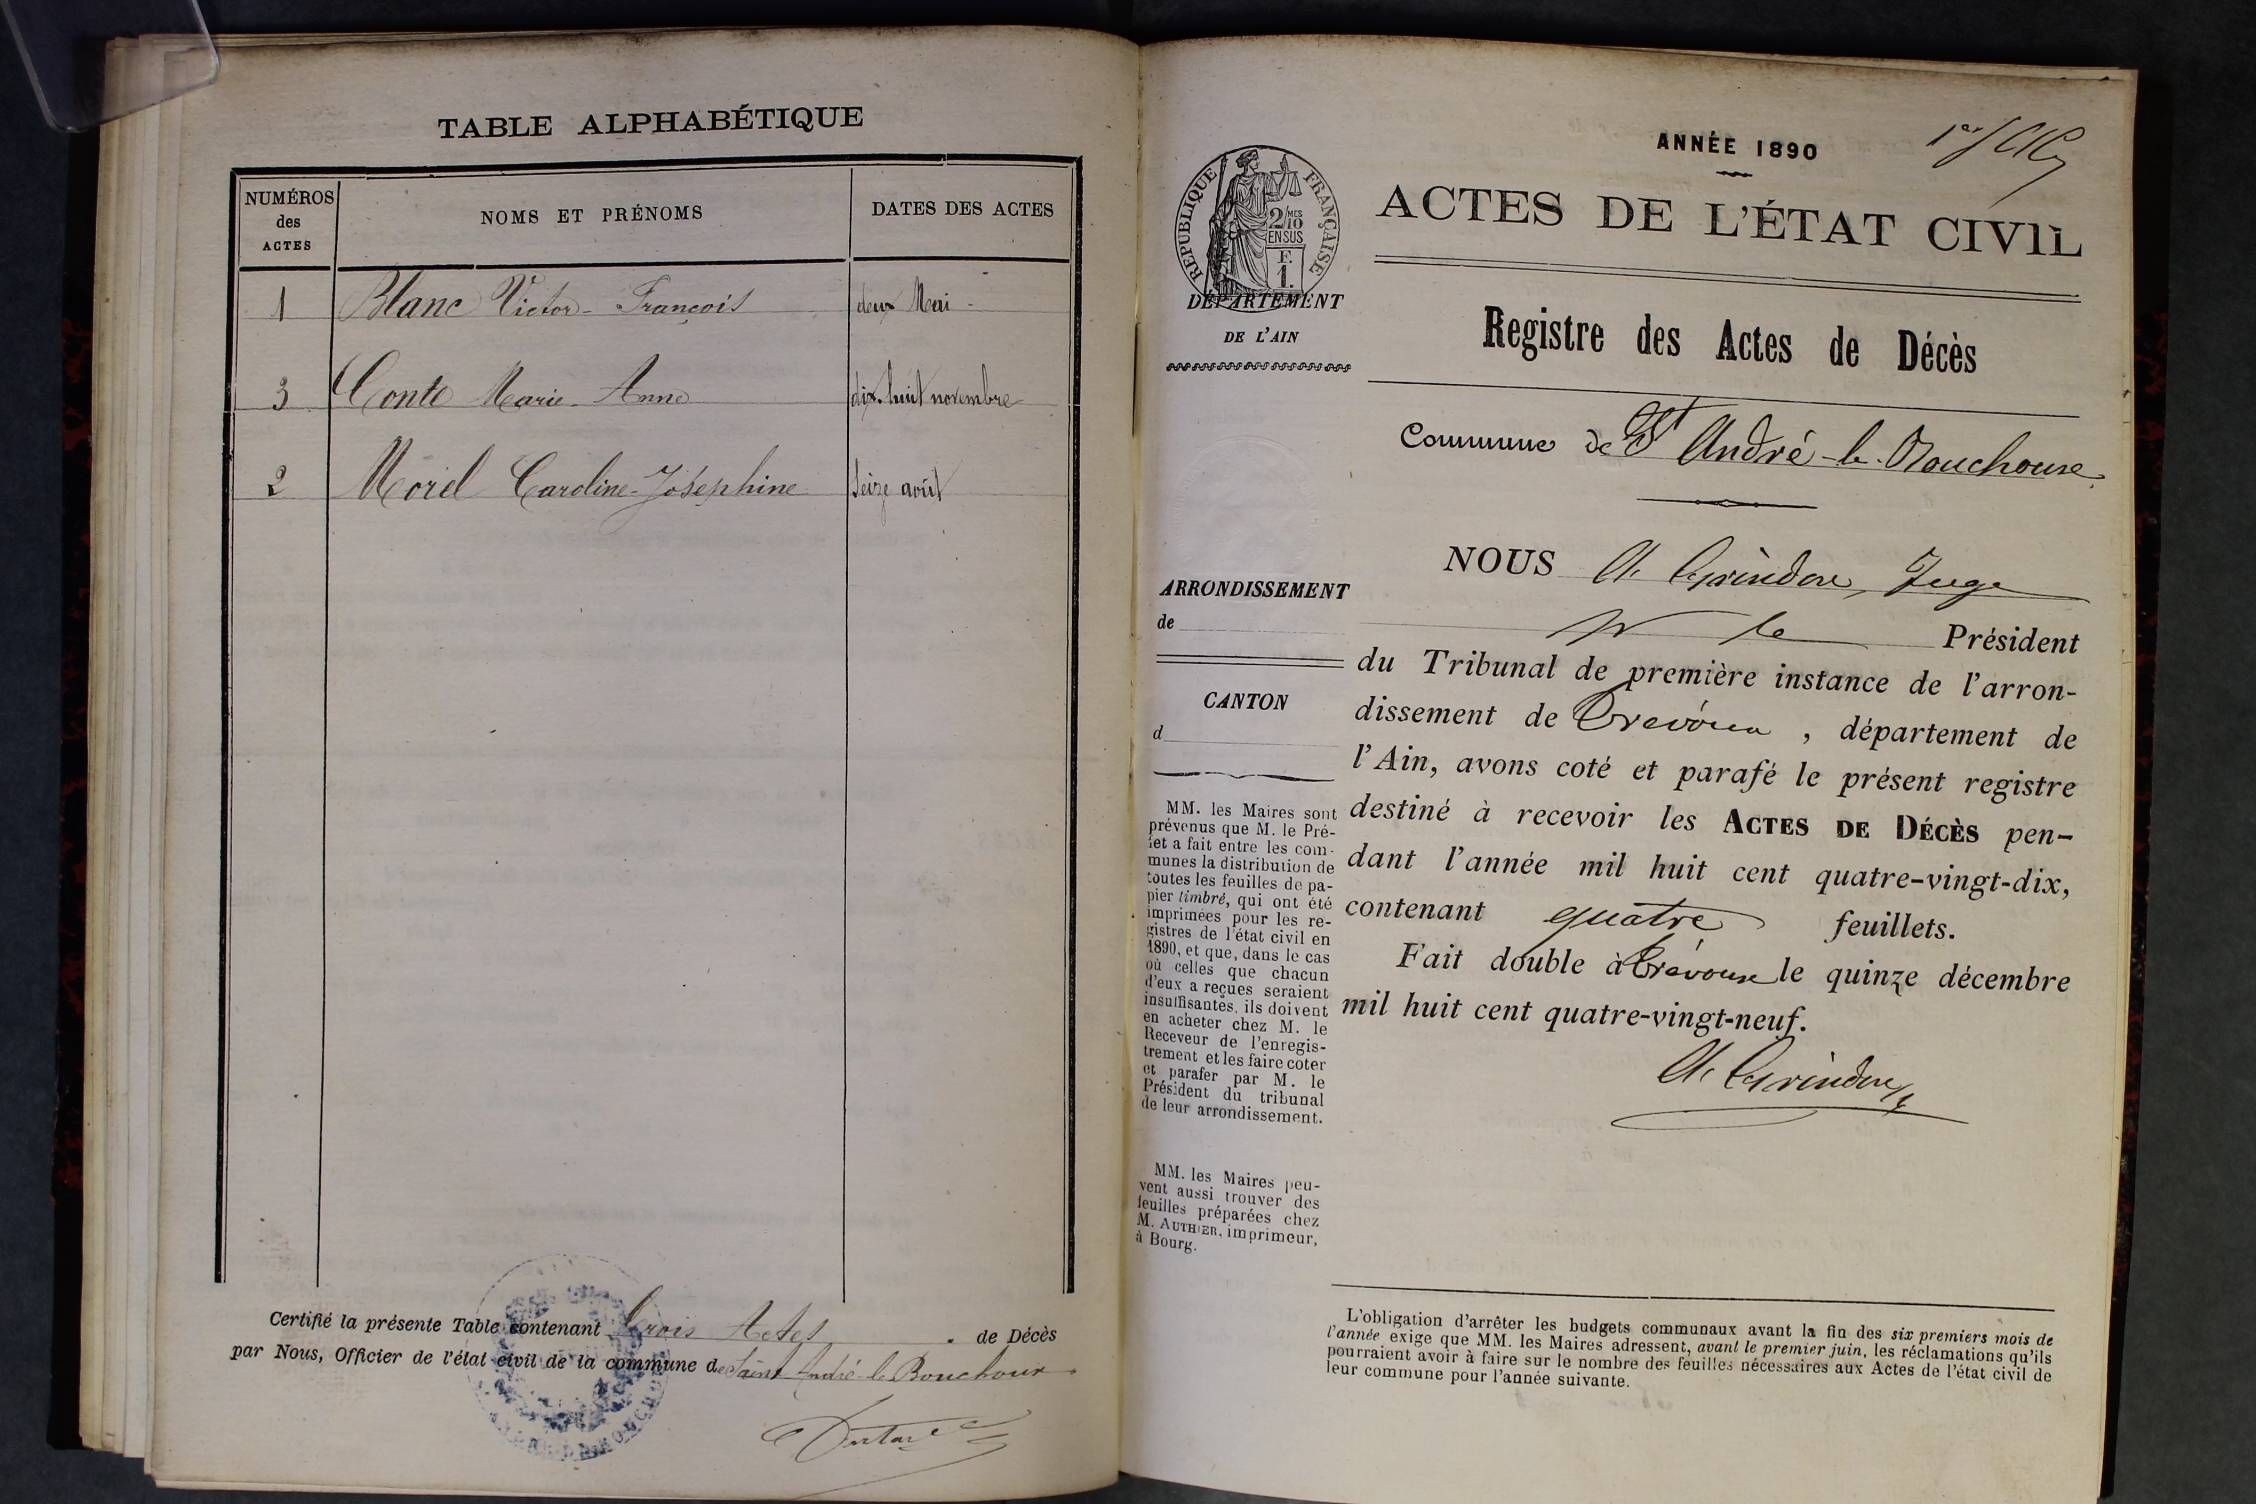 TABLE ALPHABÉTIQUE
NUMÉROS
des
ACTES
NOMS ET PRÉNOMS
DATES DES ACTES
1 Blanc Victor-François deux Mai
3 Conte Marie-Anne dix-huit novembre
2 Morel Caroline-Joséphine Seize août
Certifié la présente Table contenant Trois Actes de Décès
par Nous, Officier de l'état civil de la commune de Saint André-le-Bouchoux
ANNÉE 1890
1er
ACTES DE L'ÉTAT CIVIL
RÉPUBLIQUE FRANÇAISE
2/10MES
EN SUS
F.
1.
DÉPARTEMENT
DE L'AIN
Registre des Actes de Décès
Commune de St André-le-Bouchoux
NOUS A. Grindon, Juge
pr le Président
du Tribunal de première instance de l'arron-
dissement de Trévoux, département de
l'Ain, avons coté et parafé le présent registre
destiné à recevoir les ACTES DE DÉCÈS pen-
dant l'année mil huit cent quatre-vingt-dix,
contenant quatre feuillets.
Fait double à Trévoux le quinze décembre
mil huit cent quatre-vingt-neuf.
A. Grindon
ARRONDISSEMENT
de
CANTON
d
MM. les Maires sont
prévenus que M. le Pré-
fet a fait entre les com-
munes la distribution de
toutes les feuilles de pa-
pier timbré, qui ont été
imprimées pour les re-
gistres de l'état civil en
1890, et que, dans le cas
où celles que chacun
d'eux a reçues seraient
insuffisantes, ils doivent
en acheter chez M. le
Receveur de l'enregis-
trement et les faire coter
et parafer par M. le
Président du tribunal
de leur arrondissement.
MM. les Maires peu-
vent aussi trouver des
feuilles préparées chez
M. AUTHIER, imprimeur,
à Bourg.
L'obligation d'arrêter les budgets communaux avant la fin des six premiers mois de
l'année exige que MM. les Maires adressent, avant le premier juin, les réclamations qu'ils
pourraient avoir à faire sur le nombre des feuilles nécessaires aux Actes de l'état civil de
leur commune pour l'année suivante.